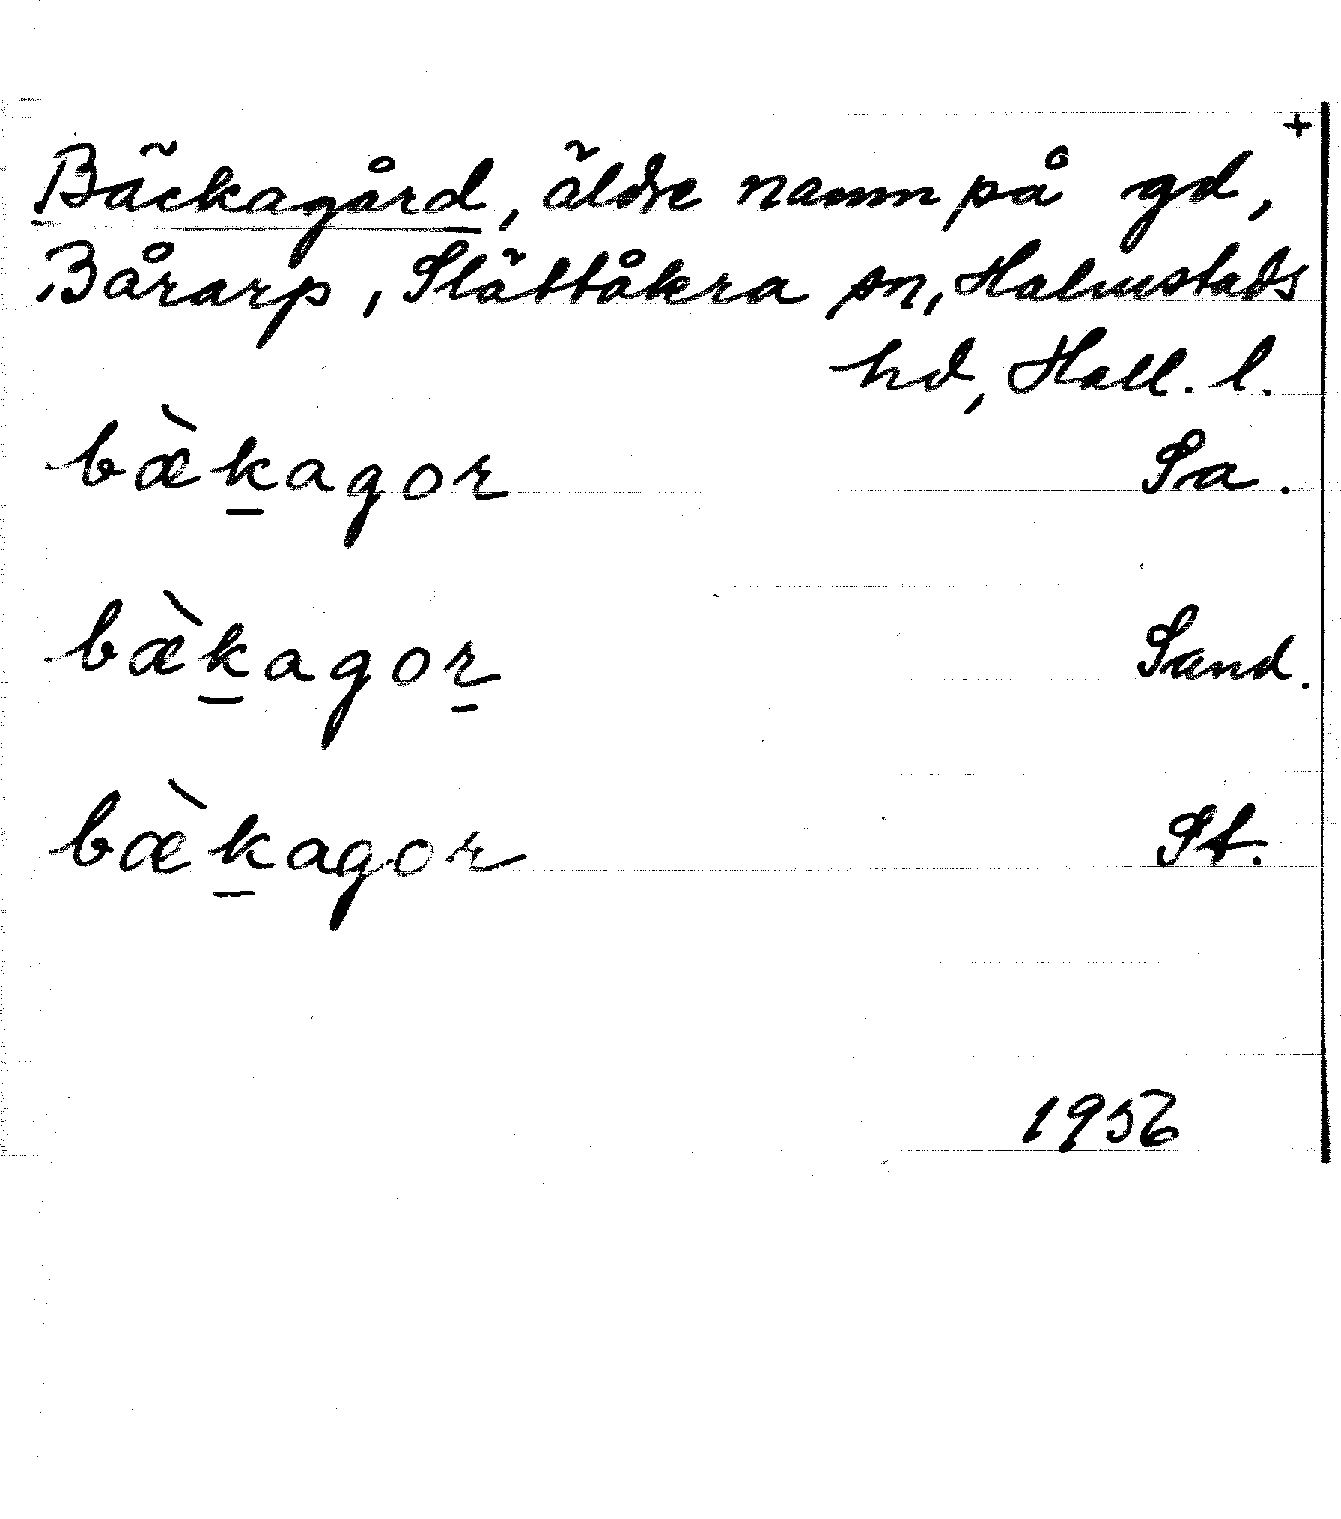 +
Bäckagård, äldre namn på gd,
Bårarp, Slättåkra sn, Halmstads
hd, Hall. l.
bæ̀k̲agor Sa.
bæ̀k̲agor̲ Sand.
bæ̀k̲agor St.
1956